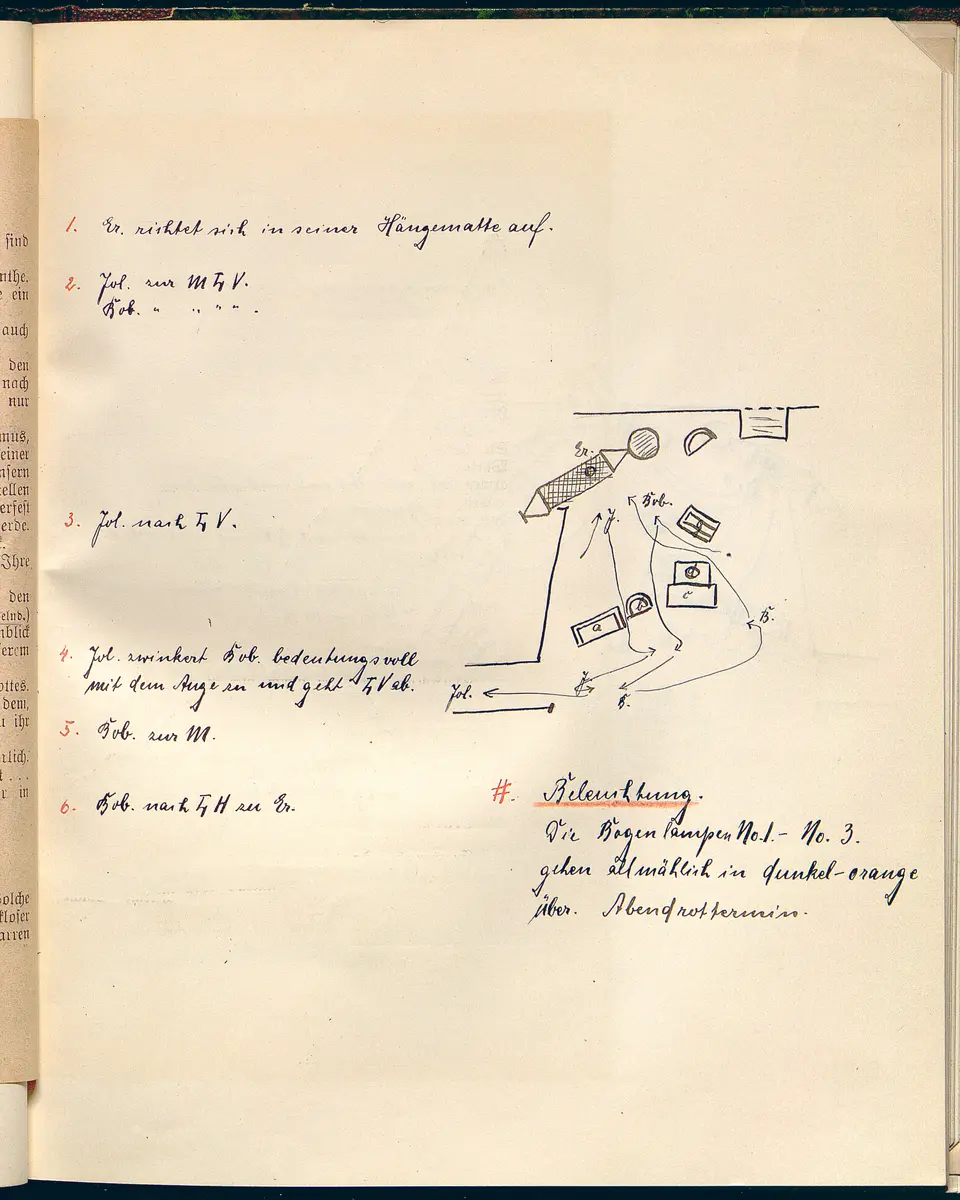 sind
nthe.
e ein
auch
den
nach
nur
mus,
seiner
nsern
tellen
erfest
erde.
Ihre
den
elnd.)
nblick
serem
ottes.
dem,
u ihr
rlich.
t ...
r in
solche
kloser
arren
1. Er. richtet sich in seiner Hängematte auf.
2. Jol. zur M L V.
Bob. " " " " .
3. Jol. nach L V.
4. Jol. zwinkert Bob. bedeutungsvoll
mit dem Auge zu und geht L V ab.
5. Bob. zur M.
6. Bob. nach L H zu Er.
Er.
Bob.
J.
b
d
c
a
b
B.
J.
Jol.
B.
#. Beleuchtung.
Die Bogenlampen No.1.- No. 3.
gehen allmählich in dunkel-orange
über. Abendrottermin.